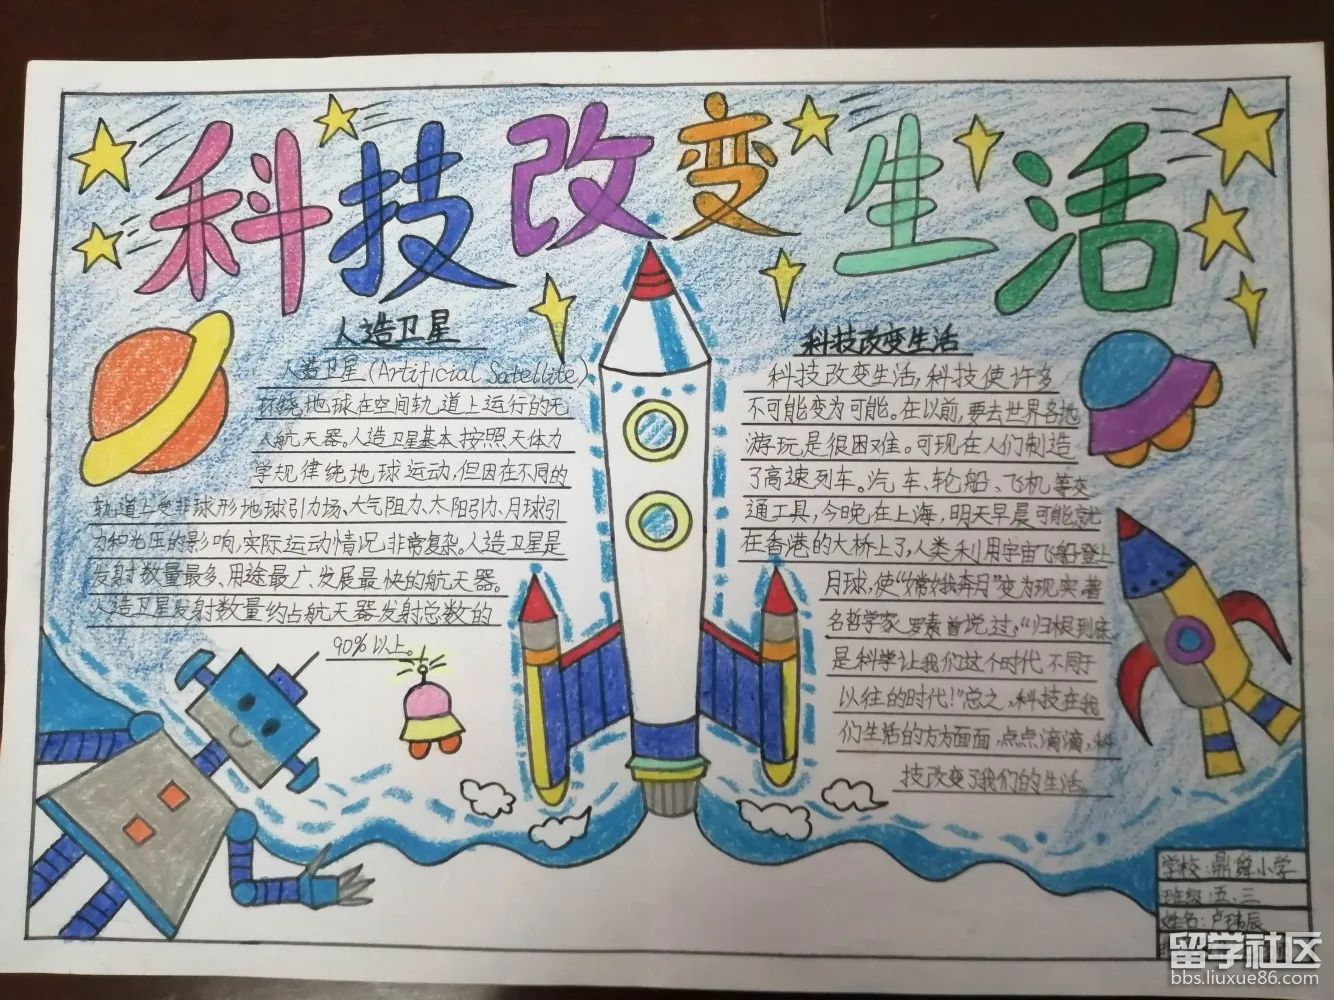 科技改变生活
人造卫星
人造卫星(Artificial Satellite)
环绕地球在空间轨道上运行的无
人航天器。人造卫星基本按照天体力
学规律绕地球运动,但因在不同的
轨道上受非球形地球引力场、大气阻力、太阳引力、月球引
力和光压的影响,实际运动情况非常复杂。人造卫星是
发射数量最多、用途最广、发展最快的航天器。
人造卫星发射数量约占航天器发射总数的
90%以上。
科技改变生活
科技改变生活,科技使许多
不可能变为可能。在以前,要去世界各地
游玩是很困难。可现在人们制造
了高速列车。汽车、轮船、飞机等交
通工具,今晚在上海,明天早晨可能就
在香港的大桥上了,人类利用宇宙飞船登上
月球,使“嫦娥奔月”变为现实。著
名哲学家罗素曾说过:“归根到底
是科学让我们这个时代,不同于
以往的时代!”总之,科技在我
们生活的方方面面,点点滴滴,科
技改变了我们的生活。
学校:鼎舜小学
班级:五、三
姓名:卢玮辰
留学社区
bbs.liuxue86.com